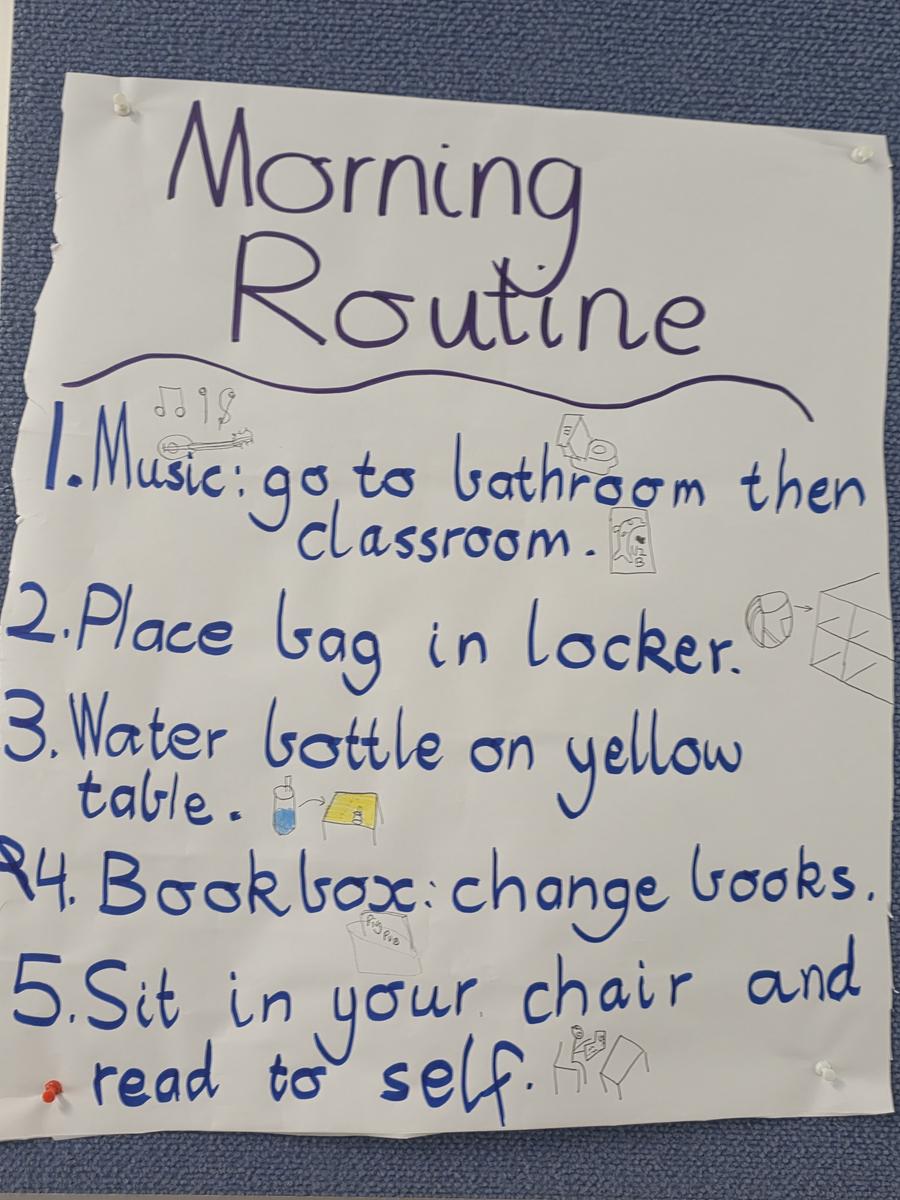 Morning
Routine
1. Music: go to bathroom then
classroom.
2. Place bag in locker.
3. Water bottle on yellow
table.
4. Book box: change books.
Pig
Pub
5. Sit in your chair and
read to self.